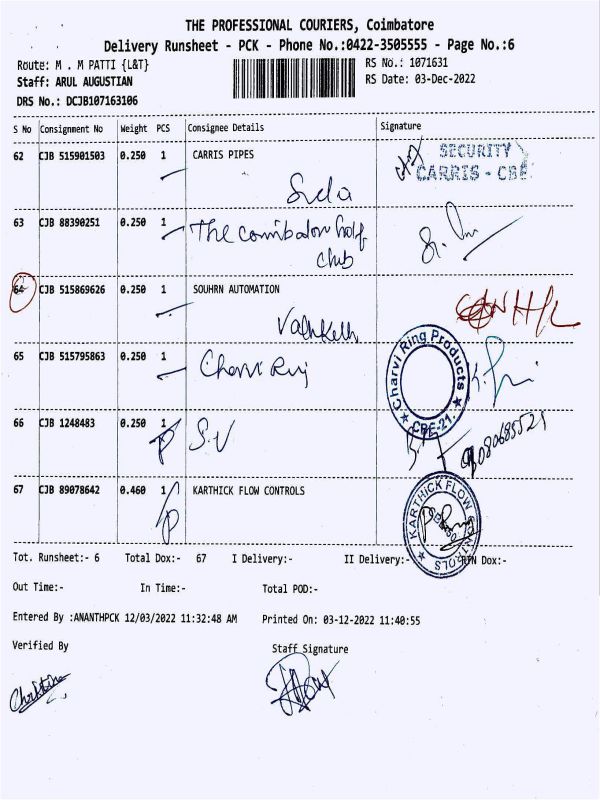 THE PROFESSIONAL COURIERS, Coimbatore
Delivery Runsheet - PCK - Phone No.:0422-3505555 - Page No.:6
Route: M . M PATTI {L&T}
RS No.: 1071631
Staff: ARUL AUGUSTIAN
RS Date: 03-Dec-2022
DRS No.: DCJB107163106
S No Consignment No Weight PCS Consignee Details Signature
62 CJB 515901503 0.250 1 CARRIS PIPES
SECURITY
CARRIS - CBE
63 CJB 88390251 0.250 1 The
club
64 CJB 515869626 0.250 1 SOUHRN AUTOMATION
65 CJB 515795863 0.250 1 Charvi Ring
Charvi Ring Products
CBE-21.
66 CJB 1248483 0.250 1 S.V
9080685521
67 CJB 89078642 0.460 1 KARTHICK FLOW CONTROLS
KARTHICK FLOW CONTROLS
Tot. Runsheet:- 6 Total Dox:- 67 I Delivery:- II Delivery:- Dox:-
Out Time:- In Time:- Total POD:-
Entered By :ANANTHPCK 12/03/2022 11:32:48 AM Printed On: 03-12-2022 11:40:55
Verified By Staff Signature